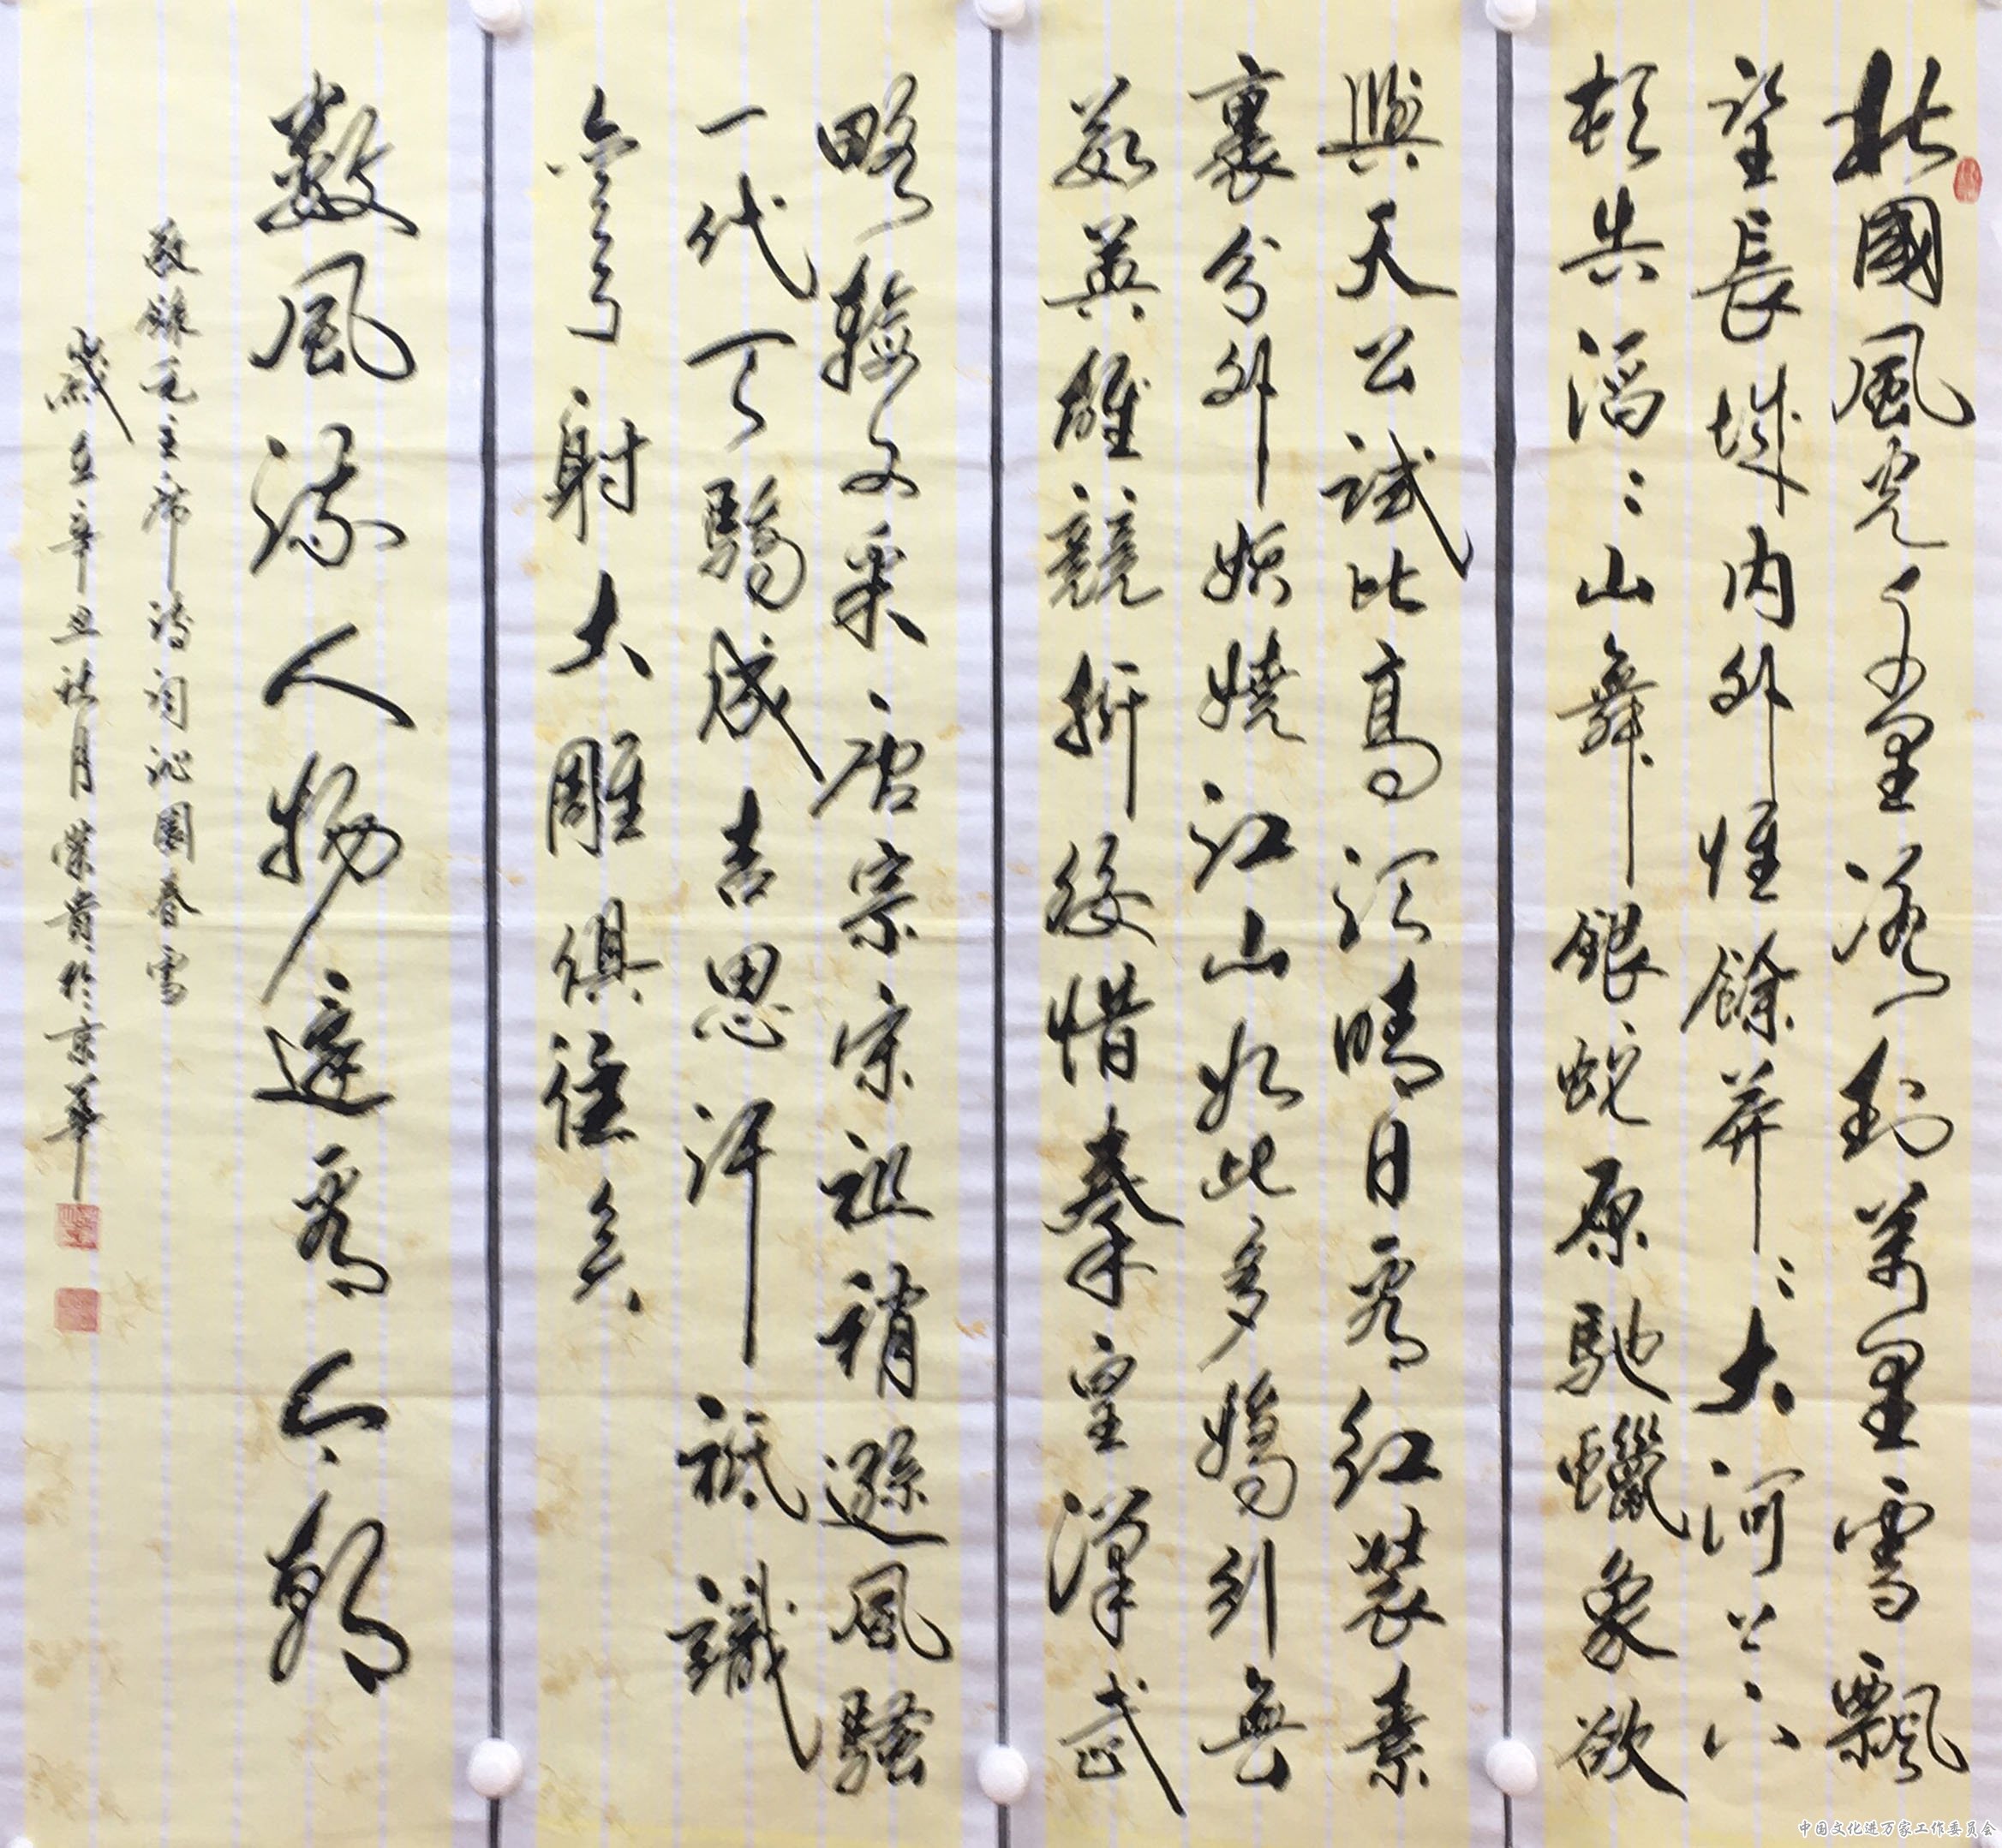 北國風光千里冰封萬里雪飄
望長城内外惟餘莽〻大河上下
頓失滔〻山舞銀蛇原馳蠟象欲
與天公試比高須晴日看紅裝素
裹分外妖嬈江山如此多嬌引無
數英雄競折腰惜秦皇漢武
略輸文采唐宗宋祖稍遜風騷
一代天驕成吉思汗祗識
彎弓射大雕俱往矣
數風流人物還看今朝
敬錄毛主席詩詞沁園春雪
歲在辛丑社月榮貴於京華
中国文化进万家工作委员会